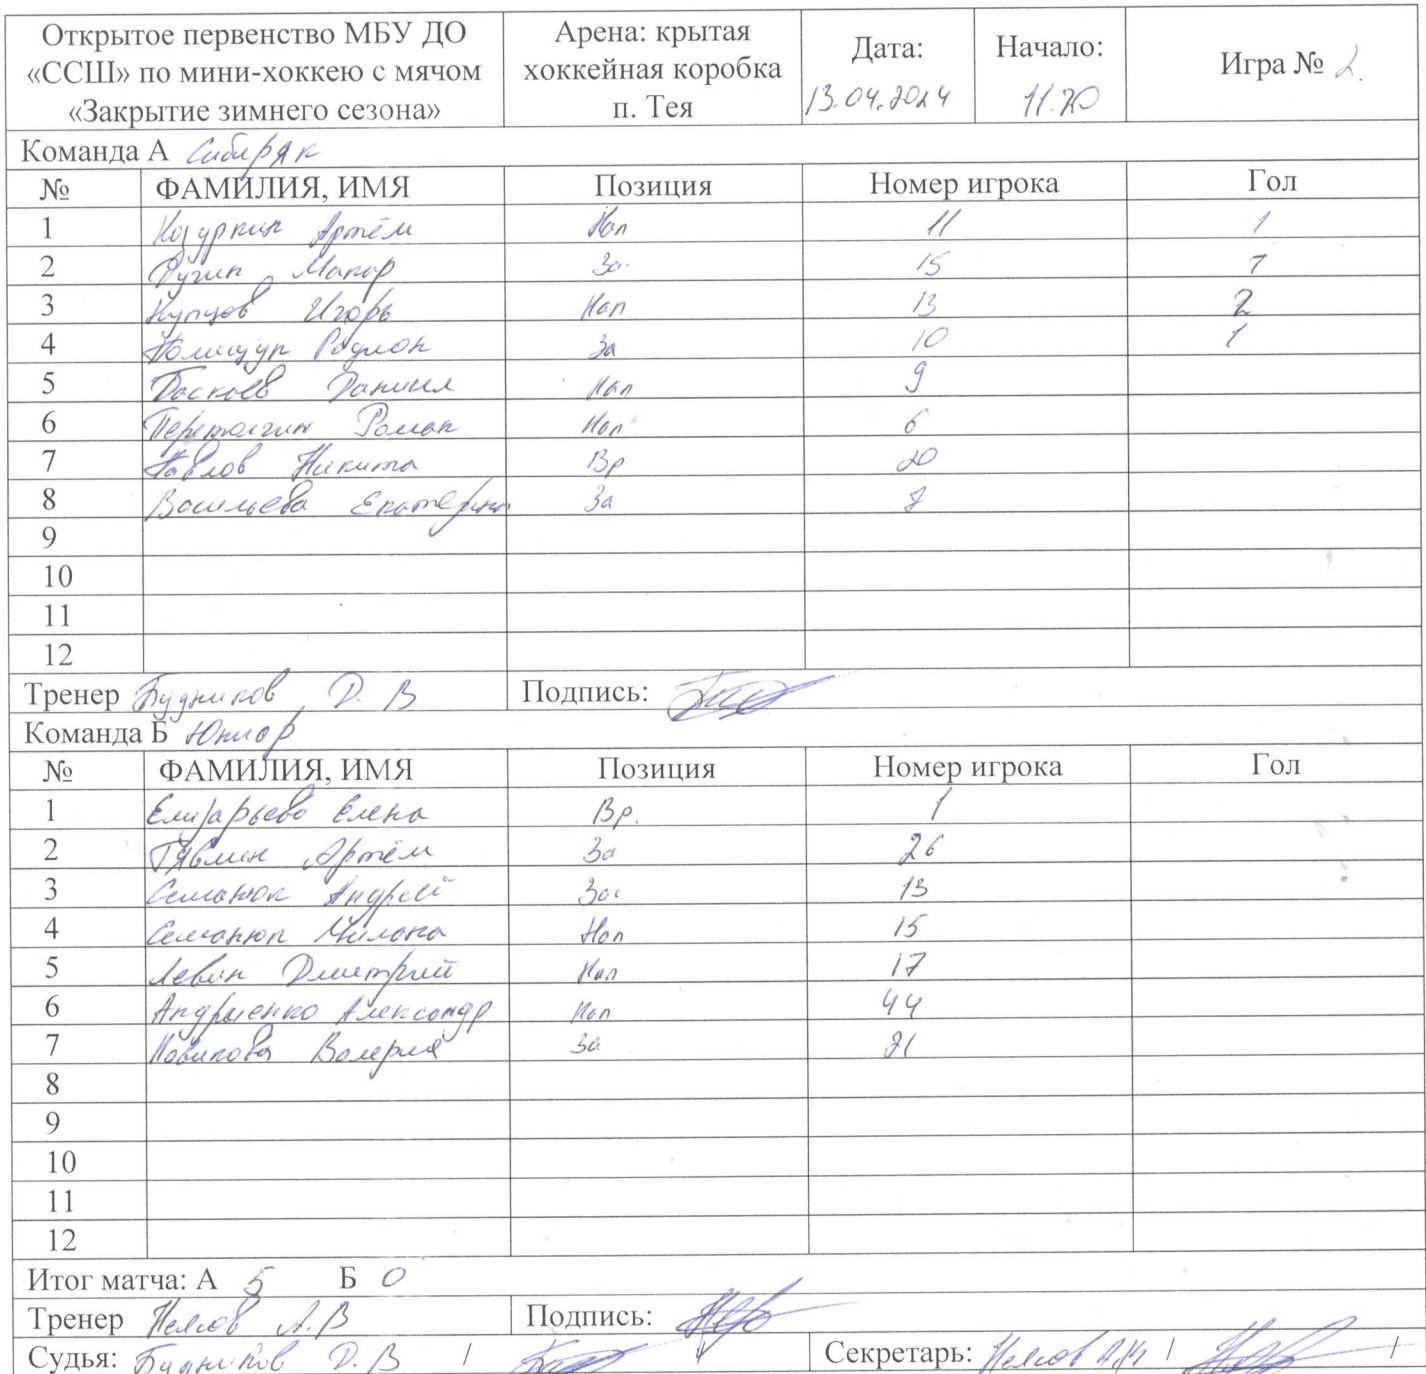 Открытое первенство МБУ ДО «ССШ» по мини-хоккею с мячом «Закрытие зимнего сезона» Арена: крытая хоккейная коробка п. Тея Дата: 13.04.2024 Начало: 11.20 Игра № 2.
Команда А Сибиряк
№ ФАМИЛИЯ, ИМЯ Позиция Номер игрока Гол
1 Артём Нап 11 1
2 Макар За 15 1
3 Купцов Игорь Нап 13 2
4 Полищук Родион За 10 1
5 Даниил Нап 9
6 Перетолчин Роман Нап 6
7 Павлов Никита Вр 20
8 Васильева Екатерина За 7
9
10
11
12
Тренер Будников Д. В Подпись:
Команда Б Юниор
№ ФАМИЛИЯ, ИМЯ Позиция Номер игрока Гол
1 Елизарьева Елена Вр. 1
2 Тявмин Артём За 26
3 Семанюк Андрей За 13
4 Семанюк Милана Нап 15
5 Левин Дмитрий Нап 17
6 Андриенко Александр Нап 44
7 Новикова Валерия За 21
8
9
10
11
12
Итог матча: А 5 Б 0
Тренер А.В Подпись:
Судья: Будников Д. В / / Секретарь: / /